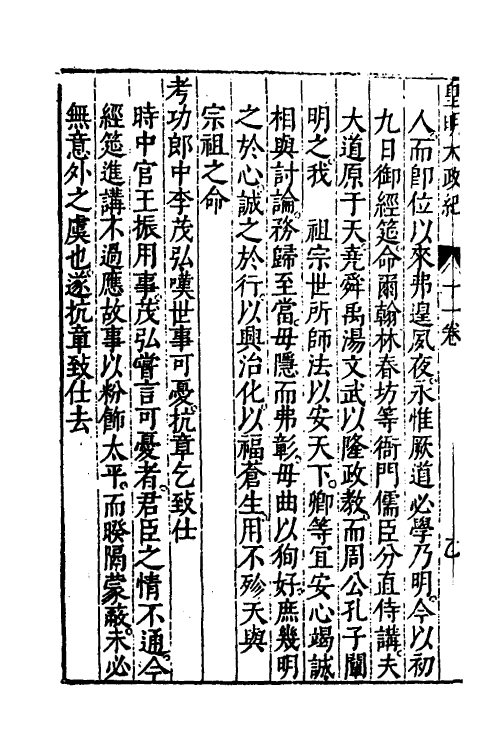 皇明大政紀 十一卷 乙
人而卽位以來弗遑夙夜。永惟厥道必學乃明。今以初
九日御經筵。命爾翰林春坊等衙門儒臣分直侍講。夫
大道原于天。堯舜禹湯文武以隆政教。而周公孔子闡
明之。我 祖宗世所師法以安天下。卿等宜安心竭誠
相與討論。務歸至當。毋隱而弗彰。毋曲以狥好。庶幾明
之於心。誠之於行。以興治化。以福蒼生。用不殄天與
宗祖之命
考功郎中李茂弘嘆世事可憂。抗章乞致仕
時中官王振用事。茂弘嘗言可憂者。君臣之情不通。今
經筵進講不過應故事以粉飾太平。而暌隔蒙蔽。未必
無意外之虞也。遂抗章致仕去